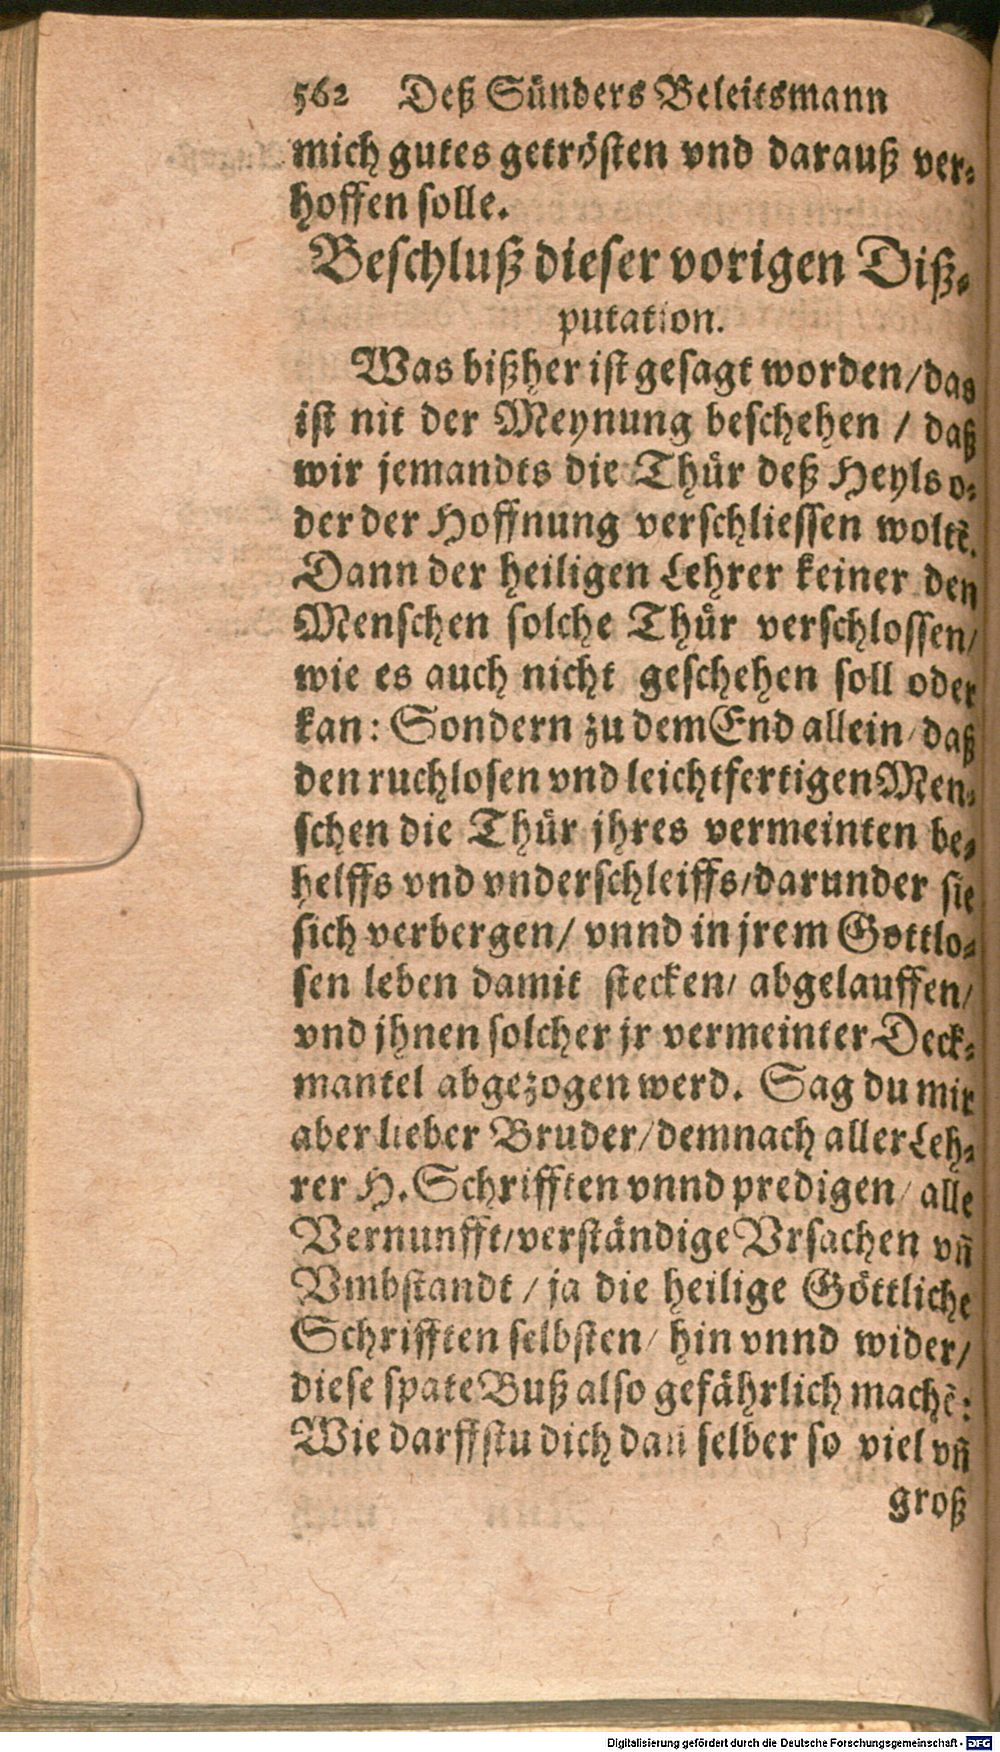 562 Deß Sünders Beleitsmann
mich gutes getrösten vnd darauß ver-
hoffen solle.
Beschluß dieser vorigen Diß-
putation.
Was bißher ist gesagt worden/das
ist nit der Meynung beschehen / daß
wir jemandts die Thür deß Heyls o-
der der Hoffnung verschliessen woltẽ.
Dann der heiligen Lehrer keiner den
Menschen solche Thür verschlossen/
wie es auch nicht geschehen soll oder
kan: Sondern zu dem End allein/daß
den ruchlosen vnd leichtfertigen Men-
schen die Thür jhres vermeinten be-
helffs vnd vnderschleiffs/darunder sie
sich verbergen/ vnnd in jrem Gottlo-
sen leben damit stecken/ abgelauffen/
vnd jhnen solcher jr vermeinter Deck-
mantel abgezogen werd. Sag du mir
aber lieber Bruder/demnach aller Leh-
rer H. Schrifften vnnd predigen/ alle
Vernunfft/verständige Vrsachen vñ
Vmbstandt / ja die heilige Göttliche
Schrifften selbsten/ hin vnnd wider/
diese spate Buß also gefährlich machẽ:
Wie darffstu dich dañ selber so viel vñ
groß
Digitalisierung gefördert durch die Deutsche Forschungsgemeinschaft - DFG